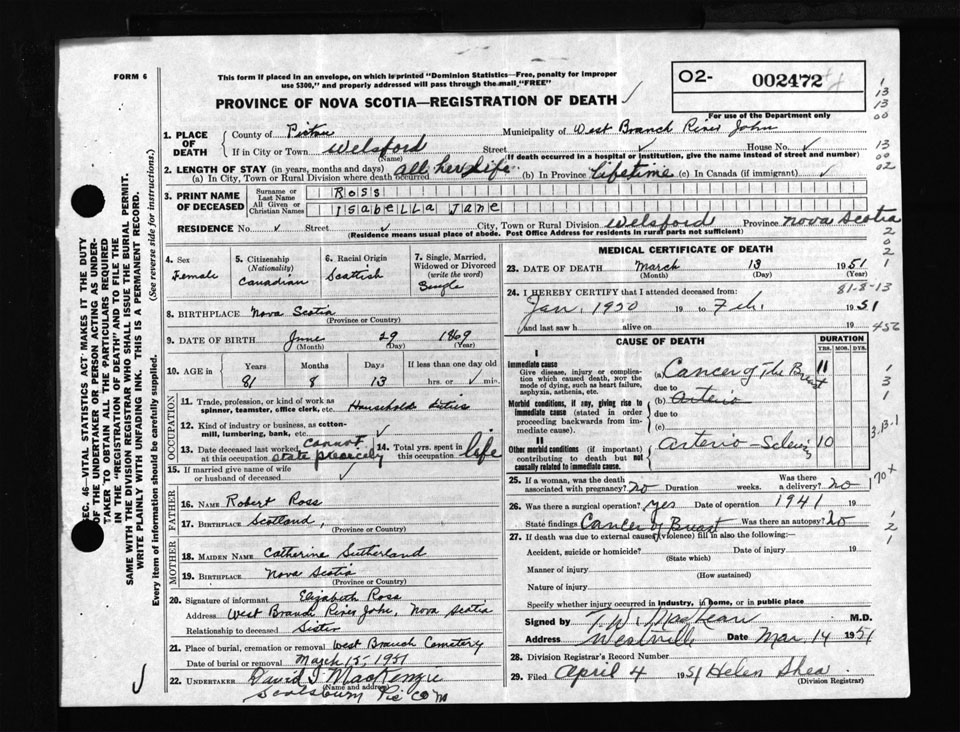 FORM 6
This form if placed in an envelope, on which is printed "Dominion Statistics—Free, penalty for improper
use $300," and properly addressed will pass through the mail "FREE"
O2- 002472
PROVINCE OF NOVA SCOTIA—REGISTRATION OF DEATH
For use of the Department only
1. PLACE OF DEATH
County of Pictou Municipality of West Branch River John
If in City or Town Welsford Street House No.
(Name) (If death occurred in a hospital or institution, give the name instead of street and number)
2. LENGTH OF STAY (in years, months and days)
(a) In City, Town or Rural Division where death occurred all her life (b) In Province Lifetime (c) In Canada (if immigrant)
3. PRINT NAME OF DECEASED
Surname or Last Name ROSS
All Given or Christian Names ISABELLA JANE
RESIDENCE No. Street City, Town or Rural Division Welsford Province Nova Scotia
(Residence means usual place of abode. Post Office Address for residents in rural parts not sufficient)
4. Sex
Female
5. Citizenship (Nationality)
Canadian
6. Racial Origin
Scottish
7. Single, Married, Widowed or Divorced (write the word)
Single
8. BIRTHPLACE Nova Scotia
(Province or Country)
9. DATE OF BIRTH June 29 1869
(Month) (Day) (Year)
10. AGE in Years Months Days If less than one day old
81 8 13 hrs. or min.
OCCUPATION
11. Trade, profession or kind of work as
spinner, teamster, office clerk, etc. Household Duties
12. Kind of industry or business, as cotton-
mill, lumbering, bank, etc.
13. Date deceased last worked at this occupation cannot state precicely
14. Total yrs. spent in this occupation life
15. If married give name of wife
or husband of deceased
FATHER
16. NAME Robert Ross
17. BIRTHPLACE Scotland,
(Province or Country)
MOTHER
18. MAIDEN NAME Catherine Sutherland
19. BIRTHPLACE Nova Scotia
(Province or Country)
20. Signature of informant Elizabeth Ross
Address West Branch River John, Nova Scotia
Relationship to deceased Sister
21. Place of burial, cremation or removal West Branch Cemetery
Date of burial or removal March 15, 1951
22. UNDERTAKER David I MacKenzie
(Name and address)
Scotsburn Pic Co NS
MEDICAL CERTIFICATE OF DEATH
23. DATE OF DEATH March 13 1951
(Month) (Day) (Year)
81-8-13
24. I HEREBY CERTIFY that I attended deceased from:
Jan. 1950 19 to Feb. 1951
and last saw h alive on 19
456
CAUSE OF DEATH
DURATION
YRS. MOS. DYS.
I
Immediate cause
Give disease, injury or complica-
tion which caused death, not the
mode of dying, such as heart failure,
asphyxia, asthenia, etc.
(a) Cancer of The Breast 11
due to
Morbid conditions, if any, giving rise to
immediate cause (stated in order
proceeding backwards from im-
mediate cause).
(b) Arterio
due to
(c)
II
Other morbid conditions (if important)
contributing to death but not
causally related to immediate cause.
Arterio-Sclerosis 10
25. If a woman, was the death
associated with pregnancy? no Duration weeks. Was there a delivery? no
170 x
26. Was there a surgical operation? yes Date of operation 1941 19
State findings Cancer of Breast Was there an autopsy? no
27. If death was due to external causes (violence) fill in also the following:—
Accident, suicide or homicide? Date of injury 19
(State which)
Manner of injury
(How sustained)
Nature of injury
Specify whether injury occurred in industry, in home, or in public place
Signed by T. W. MacKean M.D.
Address Westville Date Mar. 14 1951
28. Division Registrar's Record Number
29. Filed April 4 1951 Helen Shea
(Division Registrar)
SEC. 46—VITAL STATISTICS ACT MAKES IT THE DUTY
OF THE UNDERTAKER OR PERSON ACTING AS UNDER-
TAKER TO OBTAIN ALL THE PARTICULARS REQUIRED
IN THE "REGISTRATION OF DEATH" AND TO FILE THE
SAME WITH THE DIVISION REGISTRAR WHO SHALL ISSUE THE BURIAL PERMIT.
WRITE PLAINLY WITH UNFADING INK. THIS IS A PERMANENT RECORD.
Every item of information should be carefully supplied. (See reverse side for instructions.)